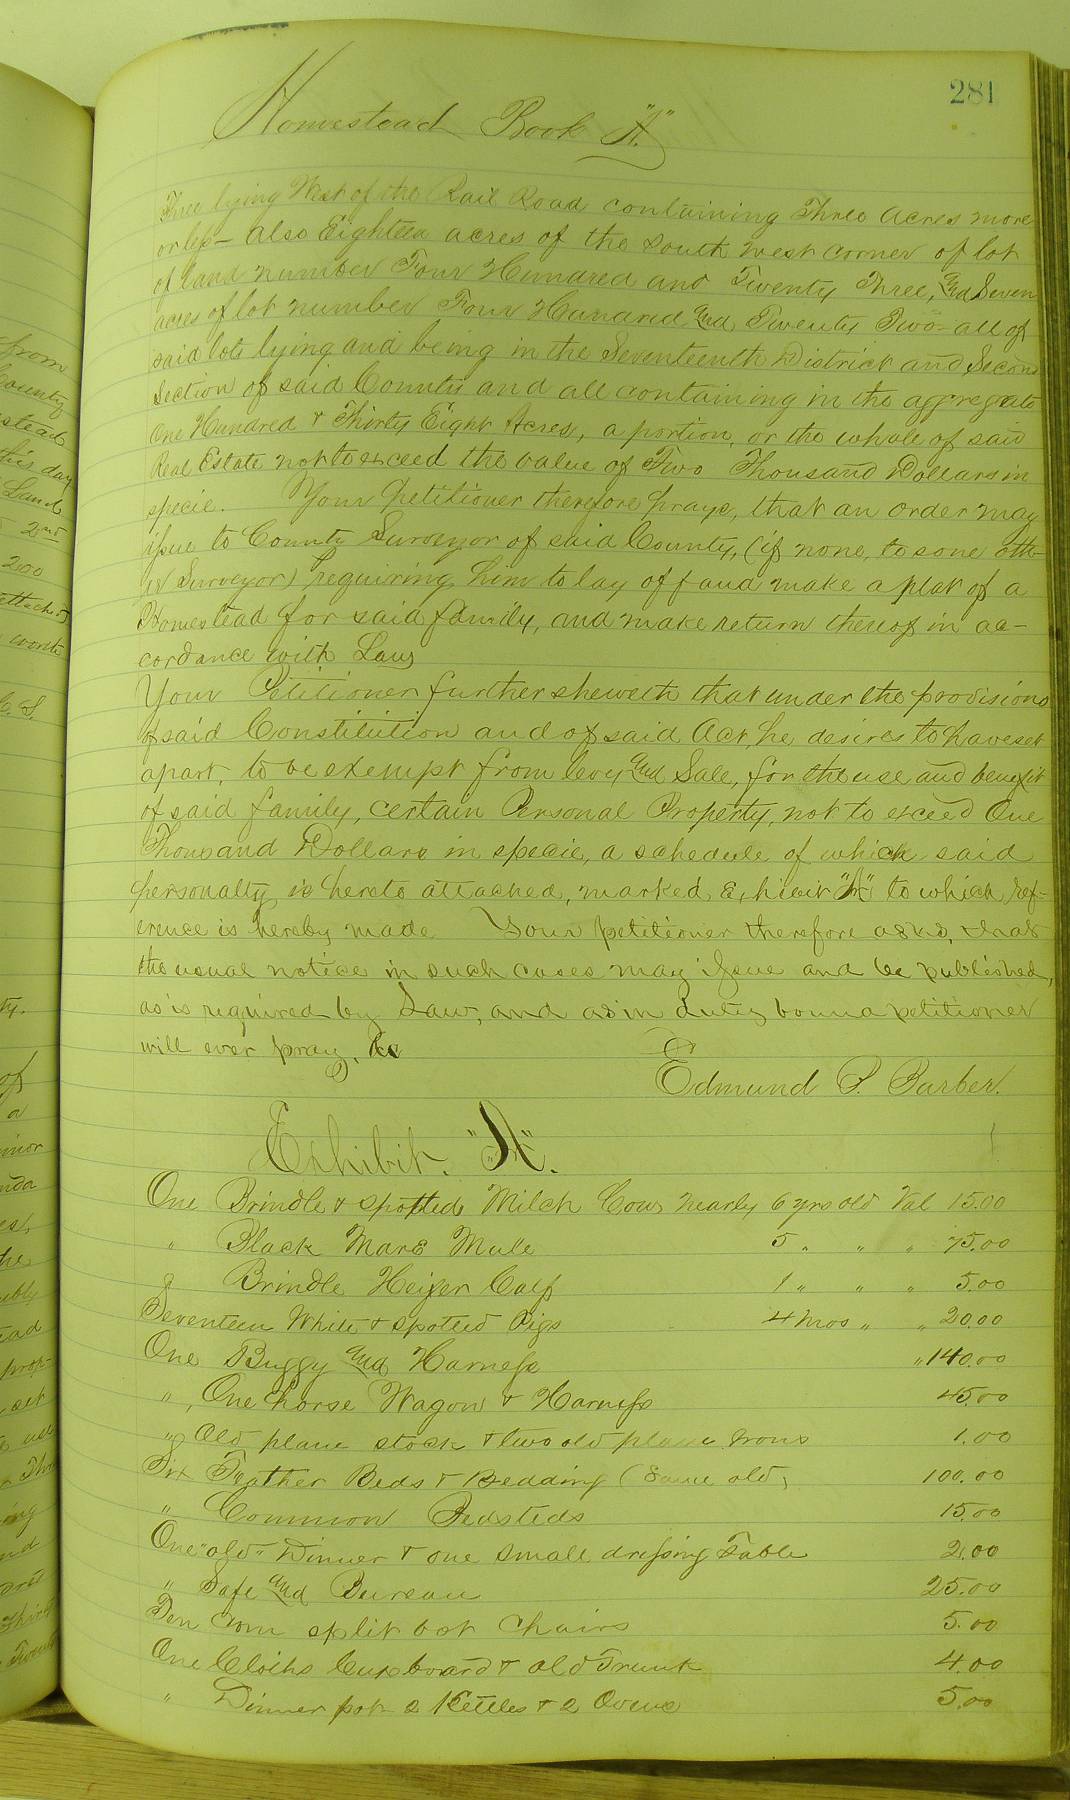 281
Homestead Book "A"
Three lying West of the Rail Road containing Three Acres more
or less – also Eighteen acres of the south west corner of lot
of land number Four Hundred and Twenty Three, and Seven
acres of lot number Four Hundred and Twenty Two – all of
said lots lying and being in the Seventeenth District and Second
Section of said County and all containing in the aggregate
One Hundred & Thirty Eight Acres, a portion, or the whole of said
Real Estate not to exceed the value of Two Thousand Dollars in
specie. Your petitioner therefore prays, that an order may
issue to County Surveyor of said County, (if none, to some oth-
er Surveyor) requiring him to lay off and make a plat of a
Homestead for said family, and make return thereof in ac-
cordance with Law,
Your Petitioner further sheweth that under the provisions
of said Constitution and of said Act, he desires to have set
apart, to be exempt from levy and Sale, for the use and benefit
of said family, certain Personal Property, not to exceed One
Thousand Dollars in specie, a schedule of which said
personalty is hereto attached, marked Exhibit "A" to which ref-
erence is hereby made Your petitioner therefore asks, that
the usual notice in such cases may issue and be published,
as is required by Law, and as in duty bound petitioner
will ever pray, &c
Edmund P. Barber.
Exhibit. "A".
One Brindle & spotted Milch Cow, nearly 6 yrs old Val 15.00
" Black Mare Mule 5 " " " 75.00
" Brindle Heifer Calf 1 " " " 5.00
Seventeen White & spotted Pigs 4 mos " " 20.00
One Buggy and Harness " 140.00
", One horse Wagon & Harness 45.00
" Old plane stock & two old plane Irons 1.00
Six Feather Beds & Bedding (Some old) 100.00
" Common Bedsteds 15.00
One "old" Dinner & one small dressing Table 2.00
" Safe and Bureau 25.00
Ten Com split bot Chairs 5.00
One Cloths Cupboard & old Trunk 4.00
" Dinner pot 2 Kettles & 2 Ovens 5.00